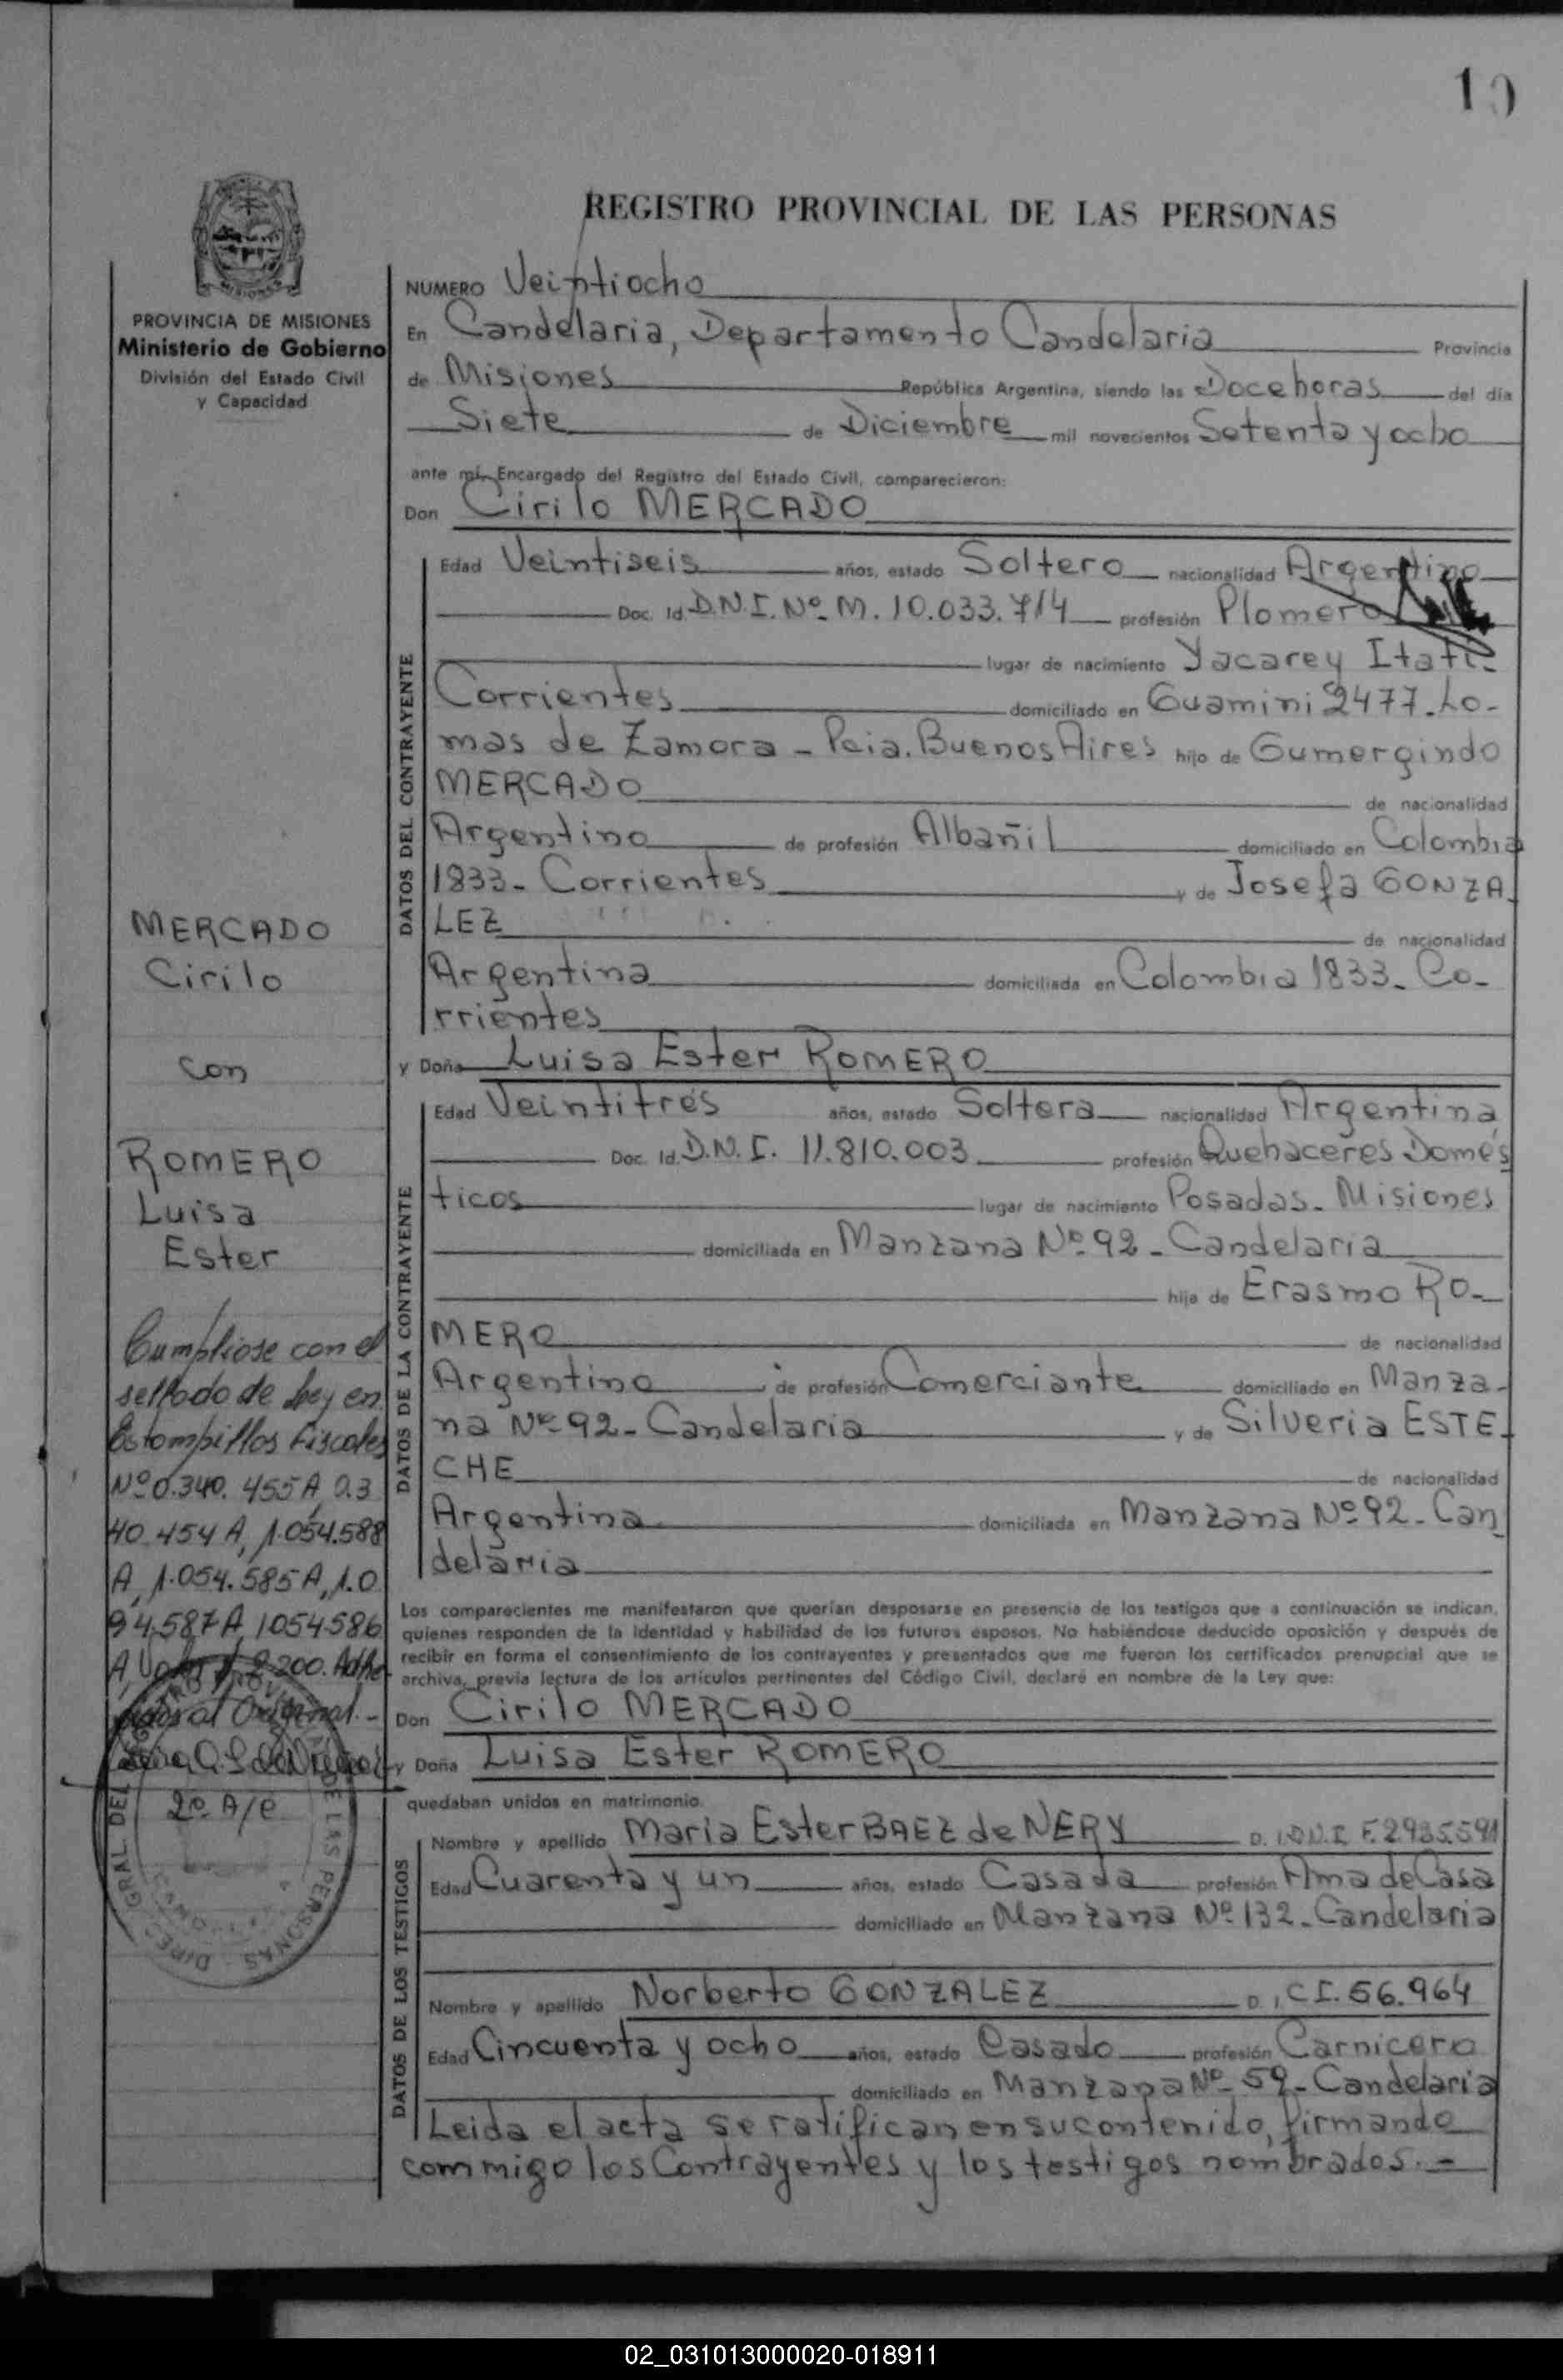 10
REGISTRO PROVINCIAL DE LAS PERSONAS
PROVINCIA DE MISIONES
Ministerio de Gobierno
División del Estado Civil
y Capacidad
MERCADO
Cirilo
con
ROMERO
Luisa
Ester
Cumpliose con el
sellado de Ley en
Estampillas Fiscales
Nº 0.340.455 A, 0.3
40.454 A, 1.054.588
A, 1.054.585 A, 1.0
94.587 A, 1054586
A, Valor $ 2.200. Adhe
al Original.-
2º A/C
NUMERO Veintiocho
En Candelaria, Departamento Candelaria Provincia
de Misiones República Argentina, siendo las Doce horas del día
Siete de Diciembre mil novecientos Setenta y ocho
ante mí, Encargado del Registro del Estado Civil, comparecieron:
Don Cirilo MERCADO
DATOS DEL CONTRAYENTE
Edad Veintiseis años, estado Soltero nacionalidad Argentino
Doc. Id. D.N.I. Nº M. 10.033.714 profesión Plomero
lugar de nacimiento Yacarey Itatí-
Corrientes domiciliado en Guamini 2477-Lo-
mas de Zamora - Pcia. Buenos Aires hijo de Gumergindo
MERCADO de nacionalidad
Argentino de profesión Albañil domiciliado en Colombia
1833- Corrientes y de Josefa GONZA-
LEZ de nacionalidad
Argentina domiciliada en Colombia 1833- Co-
rrientes
y Doña Luisa Ester ROMERO
DATOS DE LA CONTRAYENTE
Edad Veintitrés años, estado Soltera nacionalidad Argentina
Doc. Id. D.N.I. 11.810.003 profesión Quehaceres Domés
ticos lugar de nacimiento Posadas- Misiones
domiciliada en Manzana Nº 92- Candelaria
hija de Erasmo RO-
MERO de nacionalidad
Argentino de profesión Comerciante domiciliado en Manza-
na Nº 92- Candelaria y de Silveria ESTE-
CHE de nacionalidad
Argentina domiciliada en Manzana Nº 92- Can
delaria
Los comparecientes me manifestaron que querían desposarse en presencia de los testigos que a continuación se indican,
quienes responden de la identidad y habilidad de los futuros esposos. No habiéndose deducido oposición y después de
recibir en forma el consentimiento de los contrayentes y presentados que me fueron los certificados prenupcial que se
archiva, previa lectura de los artículos pertinentes del Código Civil, declaré en nombre de la Ley que:
Don Cirilo MERCADO
y Doña Luisa Ester ROMERO
quedaban unidos en matrimonio.
DATOS DE LOS TESTIGOS
Nombre y apellido Maria Ester BAEZ de NERY D. I. D.N.I. F. 2.935.591
Edad Cuarenta y un años, estado Casada profesión Ama de Casa
domiciliado en Manzana Nº 132- Candelaria
Nombre y apellido Norberto GONZALEZ D. I. C.I. 56.964
Edad Cincuenta y ocho años, estado Casado profesión Carnicero
domiciliado en Manzana Nº 59- Candelaria
Leida el acta se ratifican en su contenido, firmando
commigo los Contrayentes y los testigos nombrados.-
02_031013000020-018911